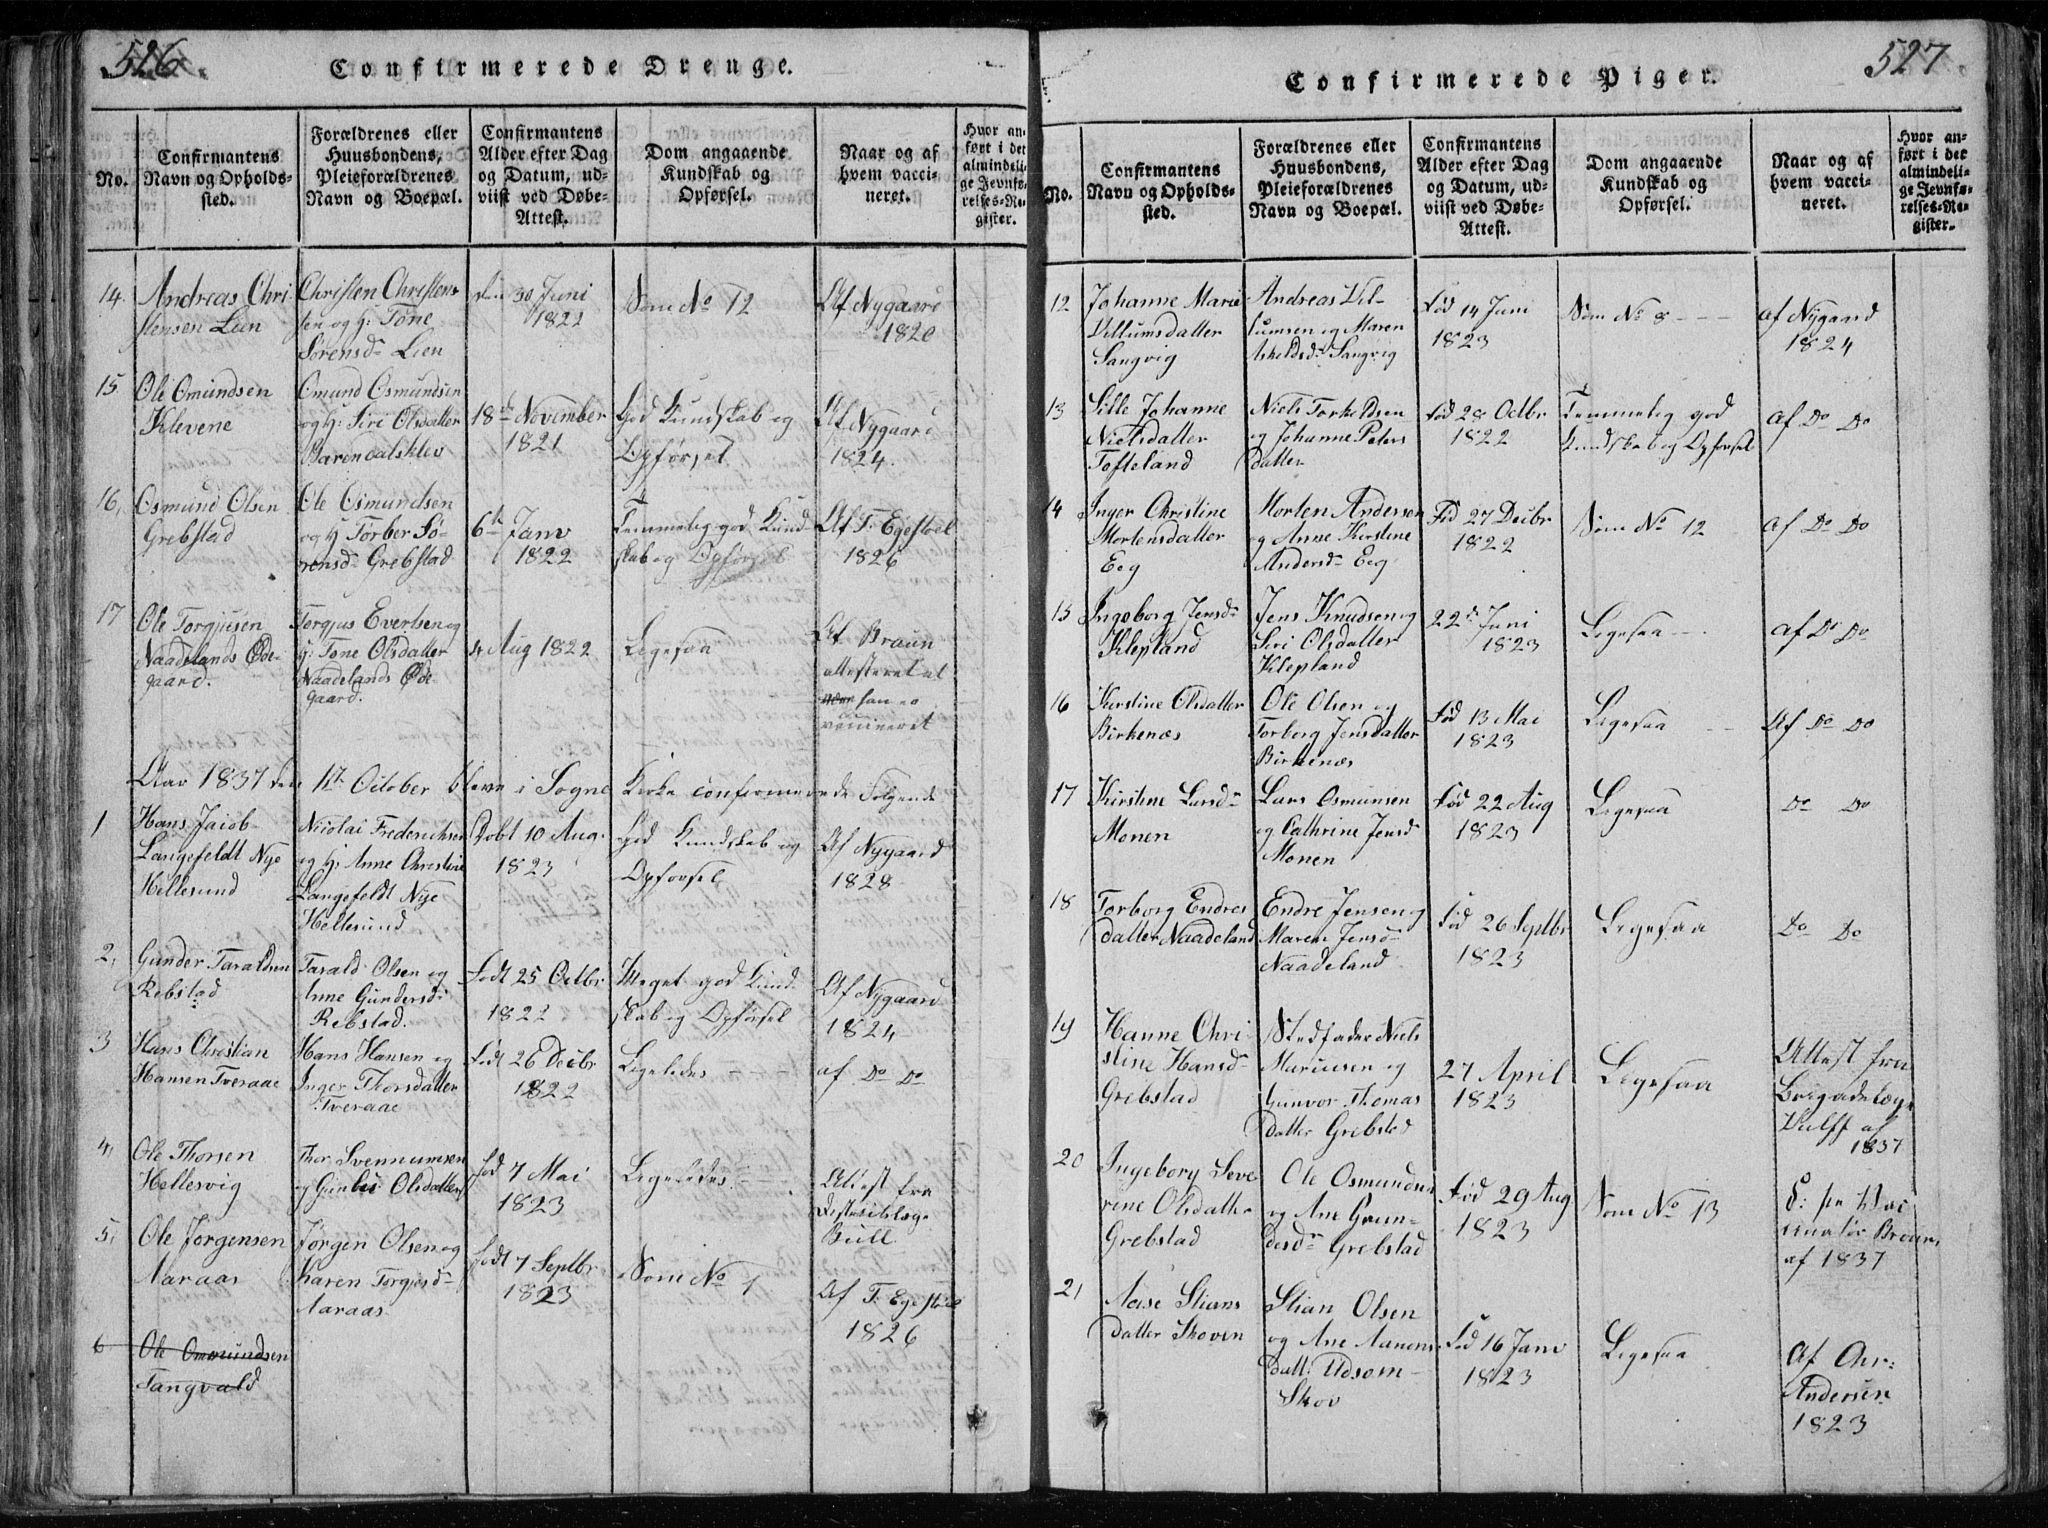 526.
Confirmerede Drenge.
No.
Confirmantens
Navn og Opholds-
sted.
Forældrenes eller
Huusbondens,
Pleieforældrenes
Navn og Boepæl.
Confirmantens
Alder efter Dag
og Datum, ud-
viist ved Døbe-
Attest.
Dom angaaende
Kundskab og
Opførsel.
Naar og af
hvem vacci-
neret.
Hvor an-
ført i det
almindeli-
ge Jevnfø-
relses-Re-
gister.
14.
Andreas Chri
stensen Lien
Christen Christens
sen og H: Tone
Sørensd. Lien
den 30 Juni
1822
Som No 12
Af Nygaard
1820
15
Ole Omundsen
Klevene
Omund Osmundsen
og H: Siri Olsdatter
18de November
1821
God Kundskab og
Opførsel
Af Nygaard
1824.
16,
Osmund Olsen
Grebstad
Ole Osmundsen
og H Torber Sø-
rensd. Grebstad
6te Janv
1822
Temmelig god Kund
skab og Opførsel
Af T. Egestøel
1826
17
Ole Torgjusen
Naadelands Øde-
gaard.
Torgjus Evertsen og
H: Tone Olsdatter
Naadelands Øde-
gaard.
4 Aug 1822
Ligesaa
Af Braun
attesteret at
han er
vaccineret
Aar 1837 den 1ste October blevne i Sogne Kirke confirmerede Følgende
1
Hans Jacob
Langefeldt Nye
Hellesund
Nicolai Frederichsen
og H: Anne Christine
Langefeldt Nye
Hellesund
Døbt 10 Aug.
1823
God Kundskab og
Opførsel
Af Nygaard
1828
2,
Gunder Taraldsen
Rebstad
Tarald Olsen og
Anne Gundersd.
Rebstad.
Født 25 Octbr
1822
Meget god Kund
skab og Opførsel
Af Nygaard
1824
3
Hans Christian
Hansen Tveraae
Hans Hansen og
Inger Thorsdatter
Tveraae
Født 26 Decbr
1822
Ligeledes - - -
af Do Do
4,
Ole Thorsen
Hellesvig
Thor Svennumsen
og Gunbir Olsdatter
Fød 7 Mai
1823
Ligeledes
Attest fra
Districtslæge
Bull
5,
Ole Jørgensen
Aaraas
Jørgen Olsen og
Karen Torgjusd.
Aaraas
Født 7 Septbr
1823
Som No 1
Af T. Egestøel
1826
6
Ole Omundsen
Tangvald
527.
Confirmerede Piger.
No.
Confirmantens
Navn og Opholds-
sted.
Forældrenes eller
Huusbondens,
Pleieforældrenes
Navn og Boepæl.
Confirmantens
Alder efter Dag
og Datum, ud-
viist ved Døbe-
Attest.
Dom angaaende
Kundskab og
Opførsel.
Naar og af
hvem vacci-
neret.
Hvor an-
ført i det
almindeli-
ge Jevnfø-
relses-Re-
gister.
12
Johanne Marie
Villumsdatter
Sangvig
Andreas Vil-
lumsen og Maren
Askeldsd. Sangvig
Fød 14 Juni
1823
Som No 8 - - -
af Nygaard
1824
13
Sille Johanne
Nielsdatter
Tofteland
Niels Torkeldsen
og Johanne Peters
datter
Fød 28 Octbr
1822
Temmelig god
Kundskab og Opførsel
af Do Do
14
Inger Christine
Mortensdatter
Eeg
Morten Andersen
og Anne Kirstine
Andersd. Eeg
Fød 27 Decbr
1822
Som No 12
af Do Do
15
Ingeborg Jensd.
Klepland
Jens Knudsen og
Siri Olsdatter
Klepland
22de Juni
1823
Ligesaa - -
af Do Do
16
Kirstine Olsdatter
Birkenæs
Ole Olsen og
Torborg Jensdatter
Birkenæs
Fød 13 Mai
1823
Ligesaa
Af Do Do
17
Kirstine Larsd.
Monen
Lars Osmunsen
og Cathrine Jensd
Monen
Fød 22 Aug
1823
Ligesaa
Do Do
18
Torborg Endres
datter Naadeland
Endre Jensen og
Maren Jensd.
Naadeland
Fød 26 Septbr
1823
Ligesaa
Do Do
19
Hanne Chri-
stine Hansd.
Grebstad
Stedfader Niels
Mariusen og
Gunvor Thomas
datter Grebstad
27 April
1823
Ligesaa
Attest fra
Brigadelæge
Wulff af
1837
20
Ingeborg Seve
rine Olsdatter
Grebstad
Ole Osmundsen
og Ane Gun-
desd. Grebstad
Fød 29 Aug
1823
Som No 13
Braun
af 1837
21
Aase Stians
datter Skoven
Stian Olsen
og Ane Aanens
datt: Udsom-
Skov
Fød 16 Janv
1823
Ligesaa
Af Chr:
Andersen
1823